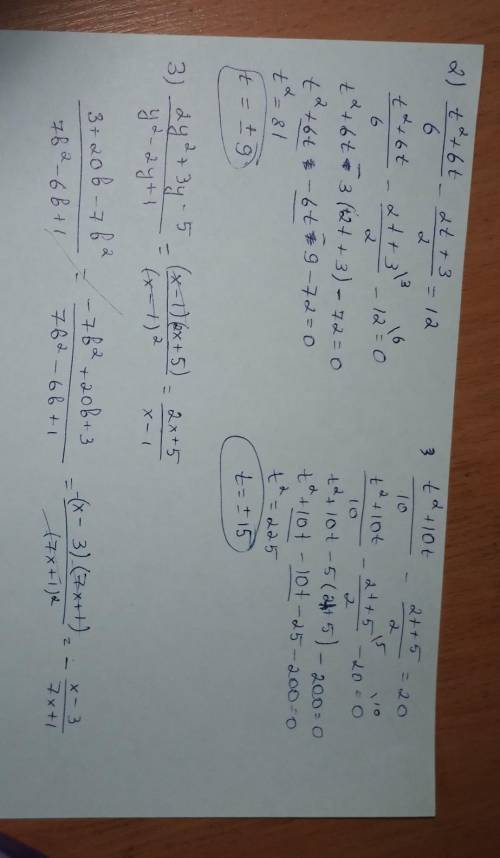 2) (t² + 6t)/6 - (2t + 3)/2 = 12
(t² + 6t)/6 - (2t + 3\3)/2 - 12\6 = 0
t² + 6t - 3(2t + 3) - 72 = 0
t² + 6t - 6t - 9 - 72 = 0
t² = 81
t = ± 9
3 (t² + 10t)/10 - (2t + 5)/2 = 20
(t² + 10t)/10 - (2t + 5\5)/2 - 20\10 = 0
t² + 10t - 5(2t + 5) - 200 = 0
t² + 10t - 10t - 25 - 200 = 0
t² = 225
t = ± 15
3) (2y² + 3y - 5)/(y² - 2y + 1) = (x - 1)(2x + 5)/(x - 1)² = (2x + 5)/(x - 1)
(3 + 20b - 7b²)/(7b² - 6b + 1) = (-7b² + 20b + 3)/(7b² - 6b + 1) = -(x - 3)(7x + 1)/(7x + 1)² = - (x - 3)/(7x + 1)